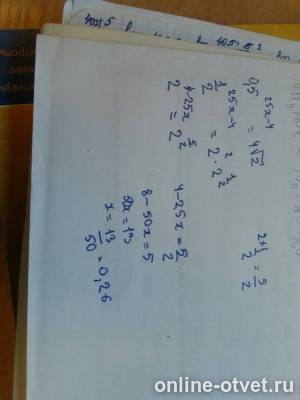 0,5^(25x-4) = 4√2
1/2^(25x-4) = 2² · 2^(1/2)
2^(4-25x) = 2^(5/2)
2+1/2 = 5/2
4-25x = 5/2
8-50x = 5
x = 13/50 = 0,26
online-otvet.ru